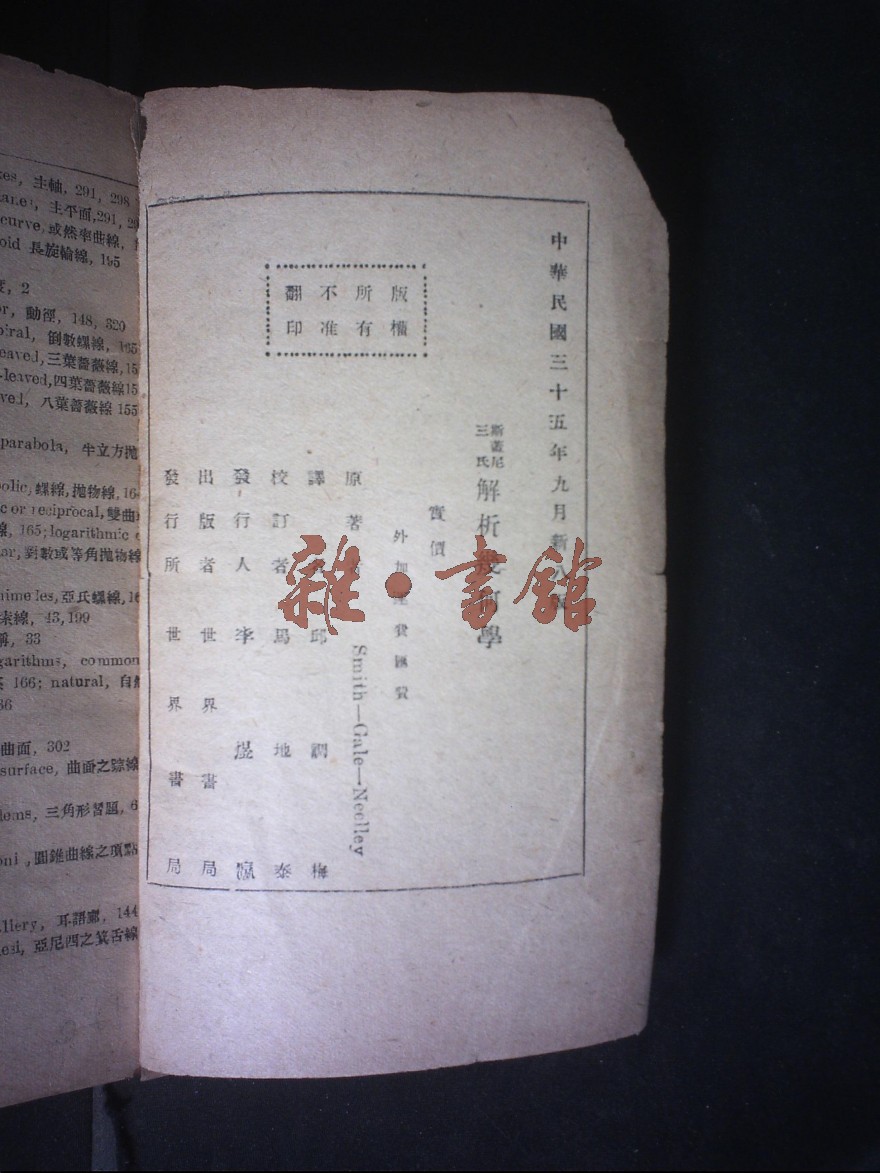 xes, 主軸, 291, 298
主平面, 291, 29
curve, 或然率曲線,
oid 長旋輪線, 195
, 2
or, 動徑, 148, 320
piral, 倒數螺線, 165
eaved, 三葉薔薇線, 15
-leaved, 四葉薔薇線15
ved, 八葉薔薇線 155
parabola, 半立方拋
olic, 螺線, 拋物線, 16
c or reciprocal, 雙曲
線, 165; logarithmic
ar, 對數或等角拋物線
nimedes, 亞氏螺線, 16
線, 43, 199
稱, 33
garithms, common
166; natural, 自然
66
曲面, 302
surface, 曲面之踪線
lems, 三角形習題, 6
oni, 圓錐曲線之項點
llery, 耳語廊, 144
nesi, 亞尼西之箕舌線
中華民國三十五年九月新八版
斯蓋尼三氏解析幾何學
實價
外加運費匯費
版權所有
不准翻印
原著者 Smith—Gale—Neelley
譯者 邱調梅
校訂者 馬地泰
發行人 李煜瀛
出版者 世界書局
發行所 世界書局
雜·書館